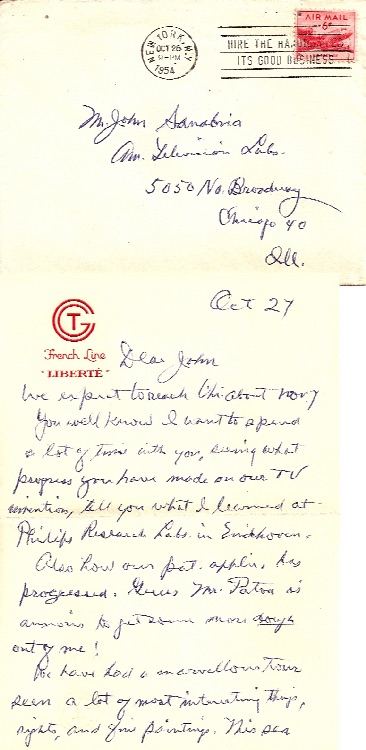 NEW YORK, N.Y.
OCT 26
9-PM
1954
HIRE THE
ITS GOOD BUSINESS
AIR MAIL
6¢
Mr. John Sanabria
Am. Television Labs.
5050 No. Broadway
Chicago 40
Ill.
Oct 27
CGT
French Line
"LIBERTÉ"
Dear John
We expect to reach Chi about Nov 7
You well know I want to spend
a lot of time with you, seeing what
progress you have made on our TV
invention, tell you what I learned at
Phillips Research Labs. in Eindhoven.
Also how our pat. applic. has
progressed. Guess Mr. is
anxious to get some more dough
out of me!
We have had a marvellous time
seen a lot of most interesting things,
sights, and fine paintings. This sea